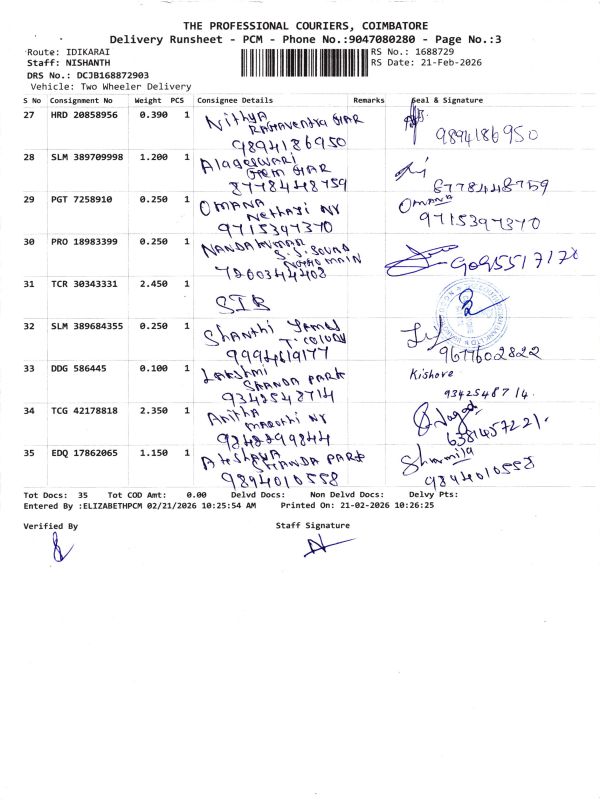 THE PROFESSIONAL COURIERS, COIMBATORE
Delivery Runsheet - PCM - Phone No.:9047080280 - Page No.:3
Route: IDIKARAI RS No.: 1688729
Staff: NISHANTH RS Date: 21-Feb-2026
DRS No.: DCJB168872903
Vehicle: Two Wheeler Delivery
S No Consignment No Weight PCS Consignee Details Remarks Seal & Signature
27 HRD 20858956 0.390 1 Nithya
9894186950 9894186950
28 SLM 389709998 1.200 1
8778448759 8778448759
29 PGT 7258910 0.250 1 OMANA Omana
Nethaji NY
9715397370 9715397370
30 PRO 18983399 0.250 1 NANDAKUMAR
31 TCR 30343331 2.450 1 SIB
32 SLM 389684355 0.250 1 Shanthi
9994619177 9677602822
33 DDG 586445 0.100 1 LAKSHMI Kishore
SHANDA PARK
9342548714 9342548714.
34 TCG 42178818 2.350 1 Anitha
Maruthi NY
6381457221.
35 EDQ 17862065 1.150 1 Sharmila
SHANDA PARK
9894010558 9894010558
Tot Docs: 35 Tot COD Amt: 0.00 Delvd Docs: Non Delvd Docs: Delvy Pts:
Entered By :ELIZABETHPCM 02/21/2026 10:25:54 AM Printed On: 21-02-2026 10:26:25
Verified By Staff Signature